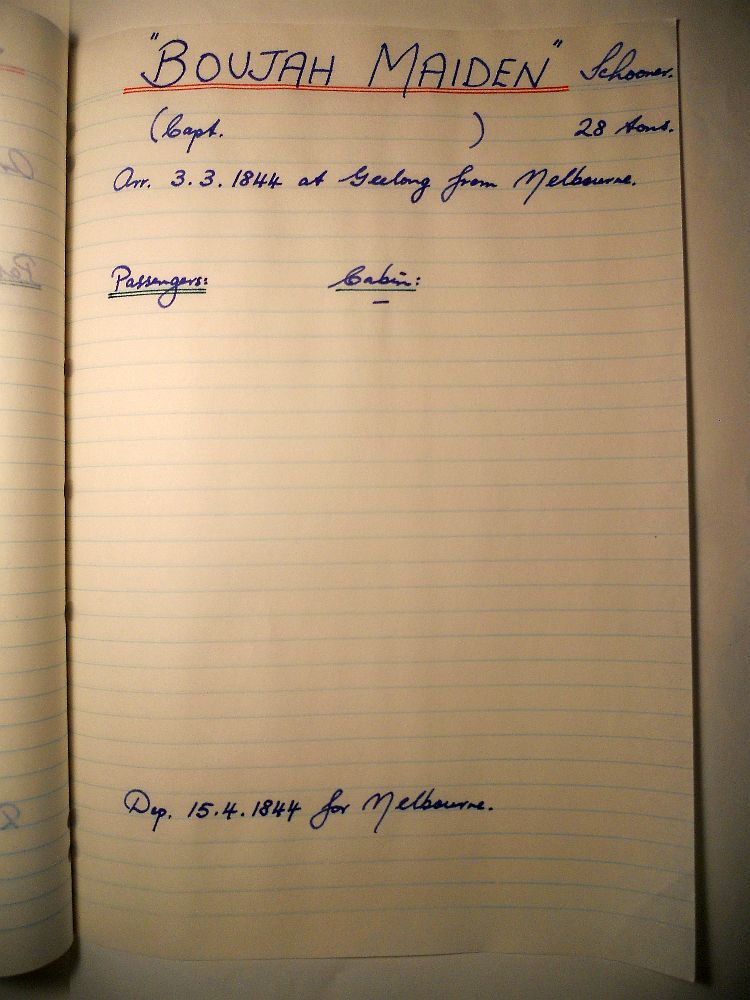 "BOUJAH MAIDEN" Schooner.
(Capt. ) 28 tons.
Arr. 3.3.1844 at Geelong from Melbourne.
Passengers: Cabin:
—
Dep. 15.4.1844 for Melbourne.